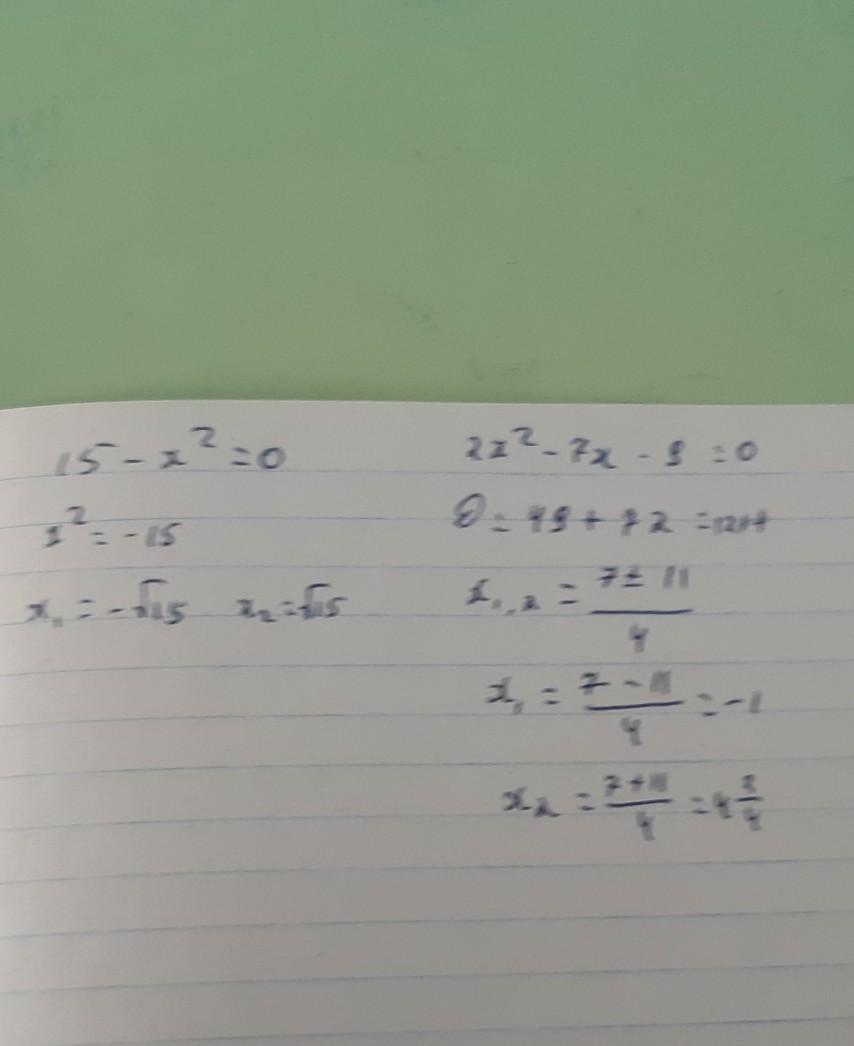 15 - x² = 0
x² = -15
x₁ = -√15 x₂ = √15
2x² - 7x - 9 = 0
D = 49 + 72 = 121
x₁,₂ = (7 ± 11)/4
x₁ = (7 - 11)/4 = -1
x₂ = (7 + 11)/4 = 4 2/4